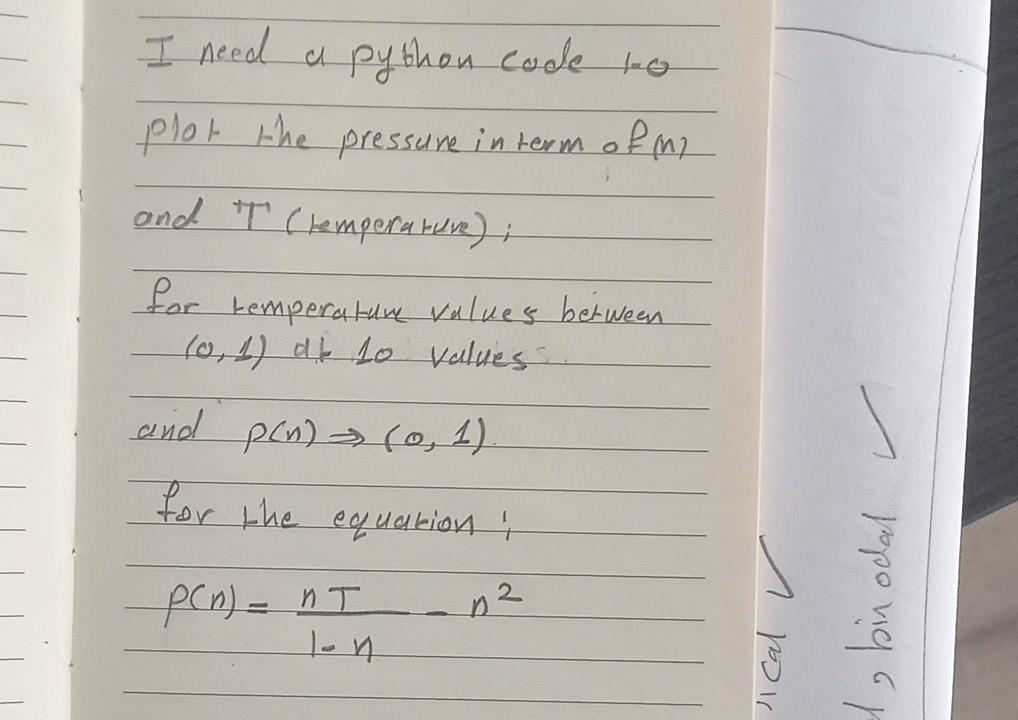 I need a python code to
plot the pressure in term of (n)
and T (temperature);
for temperature values between
(0, 1) at 10 values
and p(n) ⇒ (0, 1).
for the equation;
p(n) = nT / 1-n - n²
ical ✓
, binodal ✓